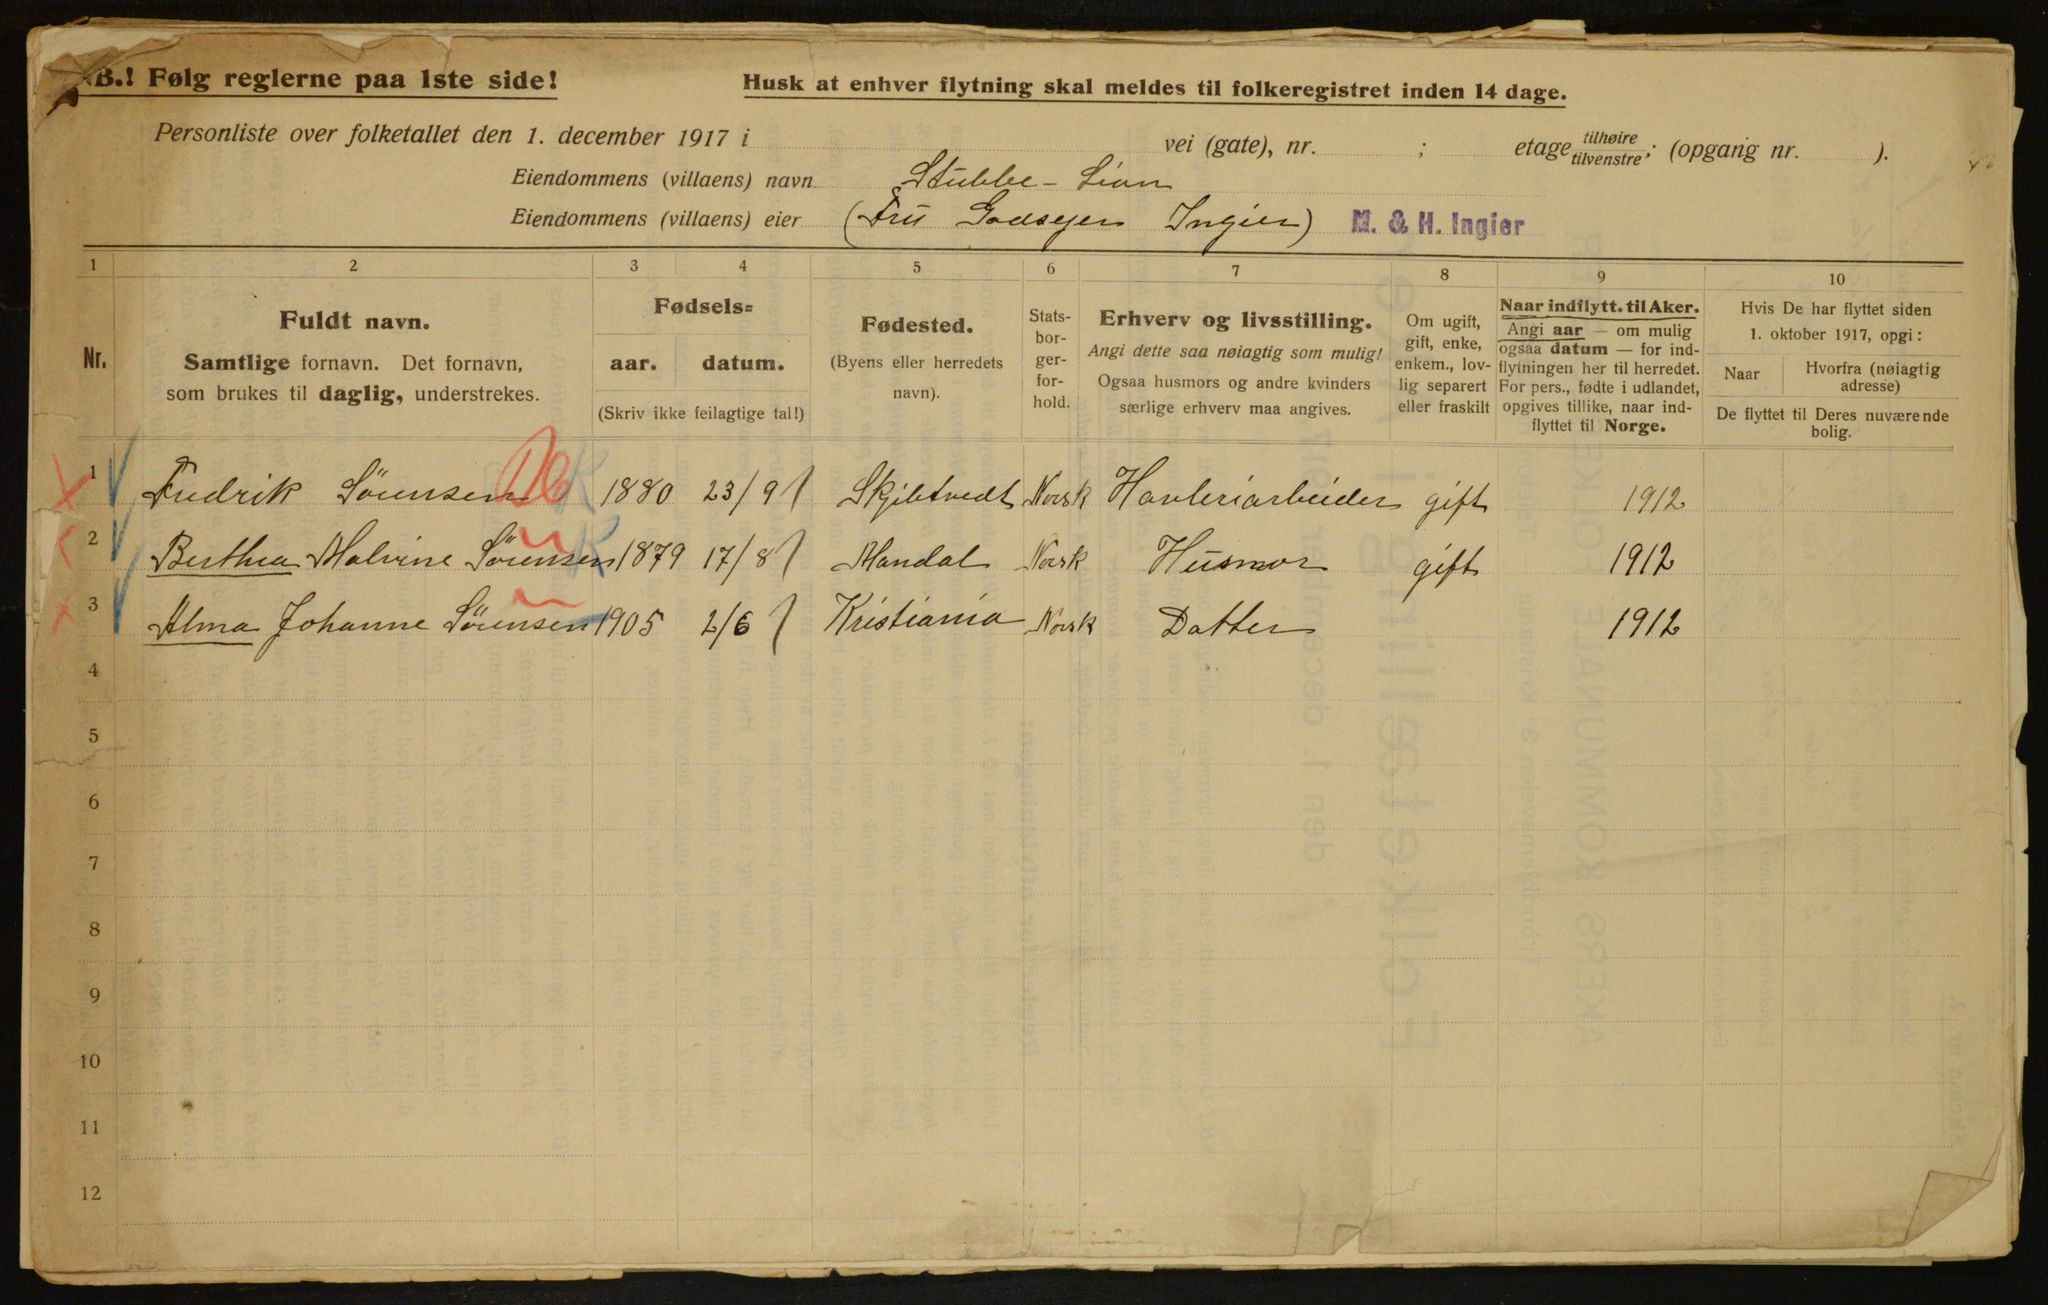 NB.! Følg reglerne paa 1ste side!
Husk at enhver flytning skal meldes til folkeregistret inden 14 dage.
Personliste over folketallet den 1. december 1917 i vei (gate), nr. ; etage tilhøire tilvenstre ; (opgang nr. ).
Eiendommens (villaens) navn Stubbe-Lian
Eiendommens (villaens) eier (Fru Godsejer Ingier) M. & H. Ingier
1 2 3 4 5 6 7 8 9 10
Nr.
Fuldt navn.
Samtlige fornavn. Det fornavn,
som brukes til daglig, understrekes.
Fødsels=
aar. datum.
(Skriv ikke feilagtige tal!)
Fødested.
(Byens eller herredets
navn).
Stats-
bor-
ger-
for-
hold.
Erhverv og livsstilling.
Angi dette saa nøiagtig som mulig!
Ogsaa husmors og andre kvinders
særlige erhverv maa angives.
Om ugift,
gift, enke,
enkem., lov-
lig separert
eller fraskilt
Naar indflytt. til Aker.
Angi aar — om mulig
ogsaa datum — for ind-
flytningen her til herredet.
For pers., fødte i udlandet,
opgives tillike, naar ind-
flyttet til Norge.
Hvis De har flyttet siden
1. oktober 1917, opgi:
Naar
Hvorfra (nøiagtig
adresse)
De flyttet til Deres nuværende
bolig.
1 Fredrik Sörensen 1880 23/9 Skjibtvedt Norsk Havleriarbeider gift 1912
2 Berthea Malvine Sörensen 1879 17/8 Mandal Norsk Husmor gift 1912
3 Alma Johanne Sörensen 1905 2/6 Kristiania Norsk Datter 1912
4
5
6
7
8
9
10
11
12